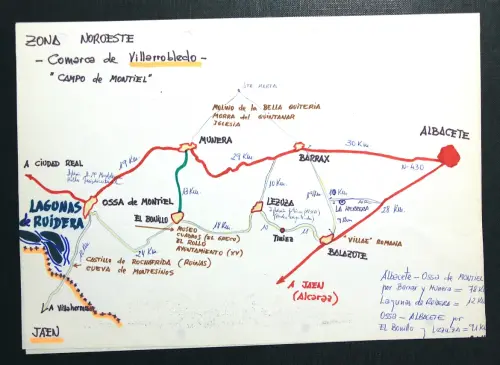 ZONA NOROESTE
- Comarca de Villarrobledo -
"CAMPO DE MONTIEL"
STA MARTA
MOLINO DE LA BELLA QUITERIA
MORRA DEL QUINTANAR
IGLESIA
MUNERA
ALBACETE
30 Km
BARRAX
29 Km
N-430
A CIUDAD REAL
19 Km
13 Km
10 Km
LA HERRERA
28 Km
OSSA DE MONTIEL
LAGUNAS
DE RUIDERA
EL BONILLO
LEZUZA
MUSEO
CUADROS (EL GRECO)
EL ROLLO
AYUNTAMIENTO (XV)
TIRIEZ
11
"VILLAE" ROMANA
BALAZOTE
24 Km
CASTILLO DE ROCHAFRIDA (RUINAS)
CUEVA DE MONTESINOS
A Villahermosa
JAEN
A JAEN
(Alcaraz)
Albacete - Ossa de MONTIEL
por Barrax y Munera = 78 K
Lagunas de Ruidera = 12 Km
OSSA - ALBACETE por
El Bonillo y Lezuza =